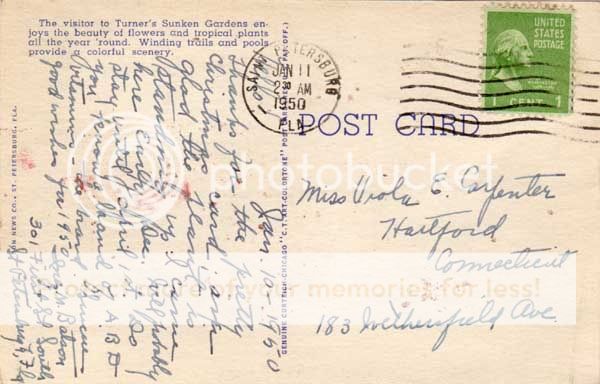 The visitor to Turner's Sunken Gardens en-
joys the beauty of flowers and tropical plants
all the year 'round. Winding trails and pools
provide a colorful scenery.
Jan. 10, 1950
Thanks for the pretty
Christmas card, am
glad the
standing up. I came
here early Dec. Will probably
stay until April 1st. Do
you
good wishes for 1950
Batson
301 First St. South
St. Petersburg, Fla
NEWS CO., ST. PETERSBURG, FLA.
GENUINE CURTEICH-CHICAGO "C.T. ART-COLORTONE" POST CARD (REG. U.S. PAT. OFF.)
SAINT PETERSBURG
JAN 11
2 30 AM
1950
FLA.
UNITED
STATES
POSTAGE
1 CENT 1
POST CARD
Miss Viola E. Carpenter
Hartford
Connecticut
183 Wethersfield Ave.
photobucket
of your memories for less!